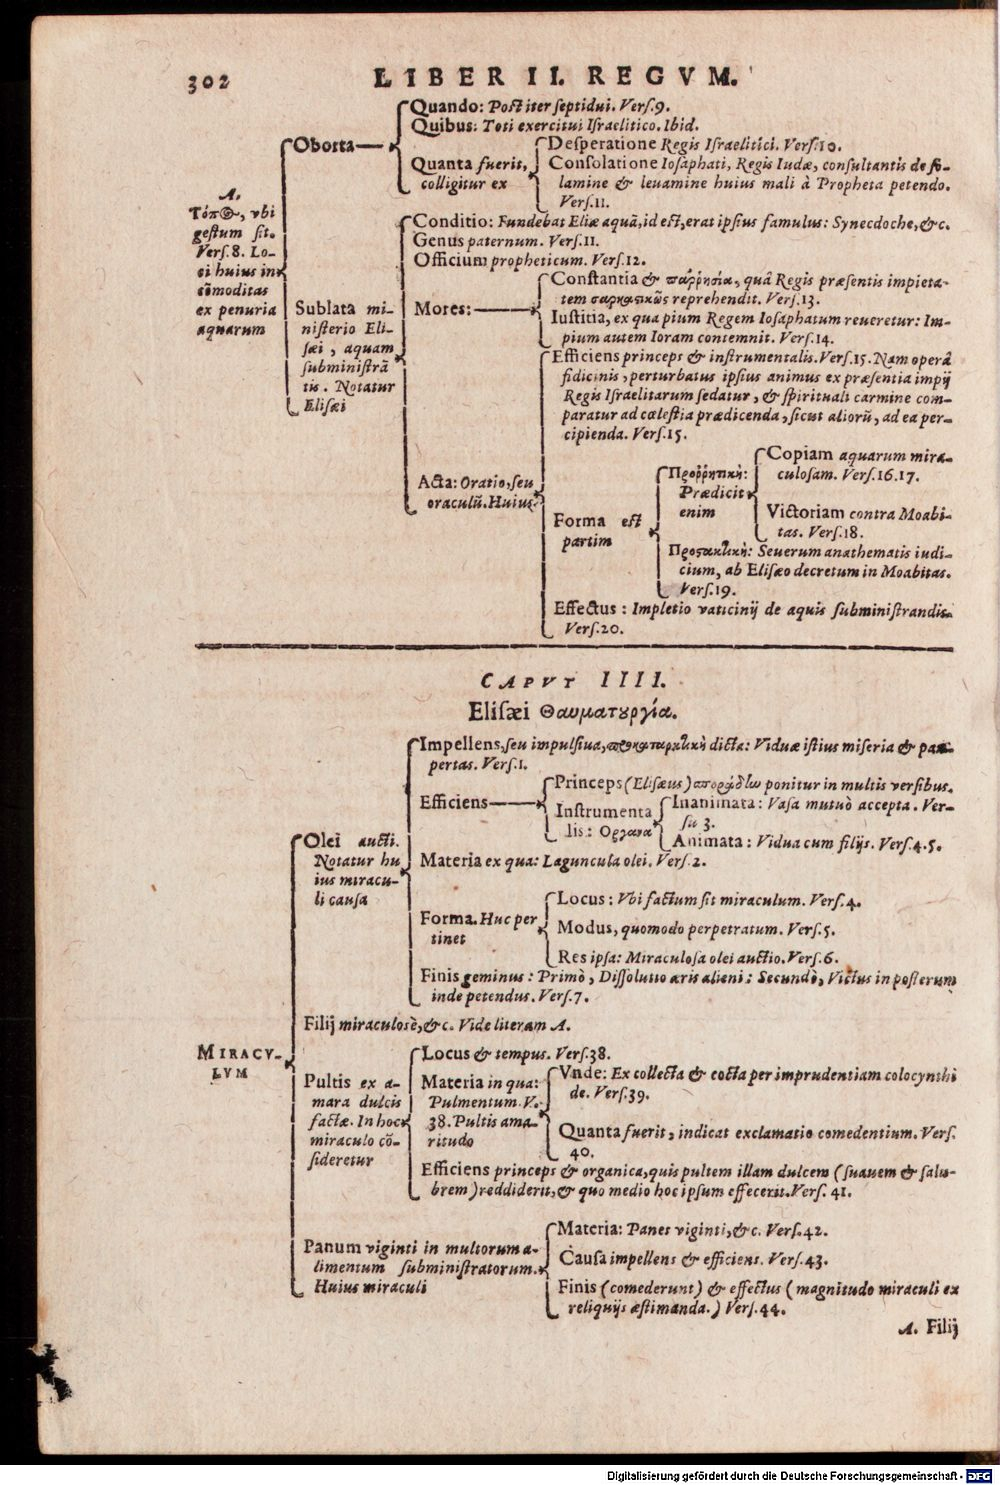 302
LIBER II. REGVM.
A.
Τόπ@, vbi
geſtum ſit.
Verſ. 8. Lo-
ci huius in
cōmoditas
ex penuria
aquarum
Oborta
Quando: Poſt iter ſeptidui. Verſ. 9.
Quibus: Toti exercitui Iſraelitico. Ibid.
Quanta fuerit,
colligitur ex
Deſperatione Regis Iſraelitici. Verſ. 10.
Conſolatione Ioſaphati, Regis Iudæ, conſultantis de ſo-
lamine & leuamine huius mali à Propheta petendo.
Verſ. 11.
Sublata mi-
niſterio Eli-
ſæi, aquam
ſubminiſtrā
tis. Notatur
Eliſæi
Conditio: Fundebat Eliæ aquā, id eſt, erat ipſius famulus: Synecdoche, &c.
Genus paternum. Verſ. 11.
Officium propheticum. Verſ. 12.
Mores:
Conſtantia & παῤῥησία, quâ Regis præſentis impieta-
tem σαρκαςικῶς reprehendit. Verſ. 13.
Iuſtitia, ex qua pium Regem Ioſaphatum reueretur: Im-
pium autem Ioram contemnit. Verſ. 14.
Acta: Oratio, ſeu
oraculū. Huius
Efficiens princeps & inſtrumentalis. Verſ. 15. Nam operâ
fidicinis, perturbatus ipſius animus ex præſentia impij
Regis Iſraelitarum ſedatur, & ſpirituali carmine com-
paratur ad cœleſtia prædicenda, ſicut aliorū, ad ea per-
cipienda. Verſ. 15.
Forma eſt
partim
Προῤῥητικὴ:
Prædicit
enim
Copiam aquarum mira-
culoſam. Verſ. 16. 17.
Victoriam contra Moabi-
tas. Verſ. 18.
Προςακτικὴ: Seuerum anathematis iudi-
cium, ab Eliſæo decretum in Moabitas.
Verſ. 19.
Effectus: Impletio vaticinij de aquis ſubminiſtrandis.
Verſ. 20.
CAPVT IIII.
Eliſæi Θαυματουργία.
MIRACV-
LVM
Olei aucti.
Notatur hu
ius miracu-
li cauſa
Impellens, ſeu impulſiua, προκαταρκτικὴ dicta: Viduæ iſtius miſeria & pau-
pertas. Verſ. 1.
Efficiens
Princeps (Eliſæus) ponitur in multis verſibus.
Inſtrumenta
lis: Οργανα
Inanimata: Vaſa mutuò accepta. Ver-
ſu 3.
Animata: Vidua cum filijs. Verſ. 4. 5.
Materia ex qua: Laguncula olei. Verſ. 2.
Forma. Huc per
tinet
Locus: Vbi factum ſit miraculum. Verſ. 4.
Modus, quomodo perpetratum. Verſ. 5.
Res ipſa: Miraculoſa olei auctio. Verſ. 6.
Finis geminus: Primò, Diſſolutio æris alieni: Secundò, Victus in poſterum
inde petendus. Verſ. 7.
Filij miraculosè, &c. Vide literam A.
Pultis ex a-
mara dulcis
factæ. In hoc
miraculo cō-
ſideretur
Locus & tempus. Verſ. 38.
Materia in qua:
Pulmentum. V.
38. Pultis ama-
ritudo
Vnde: Ex collecta & cocta per imprudentiam colocynthi
de. Verſ. 39.
Quanta fuerit, indicat exclamatio comedentium. Verſ.
40.
Efficiens princeps & organica, quis pultem illam dulcem (ſuauem & ſalu-
brem) reddiderit, & quo medio hoc ipſum effecerit. Verſ. 41.
Panum viginti in multorum a-
limentum ſubminiſtratorum.
Huius miraculi
Materia: Panes viginti, &c. Verſ. 42.
Cauſa impellens & efficiens. Verſ. 43.
Finis (comederunt) & effectus (magnitudo miraculi ex
reliquijs æſtimanda.) Verſ. 44.
A. Filij
Digitalisierung gefördert durch die Deutsche Forschungsgemeinschaft - DFG